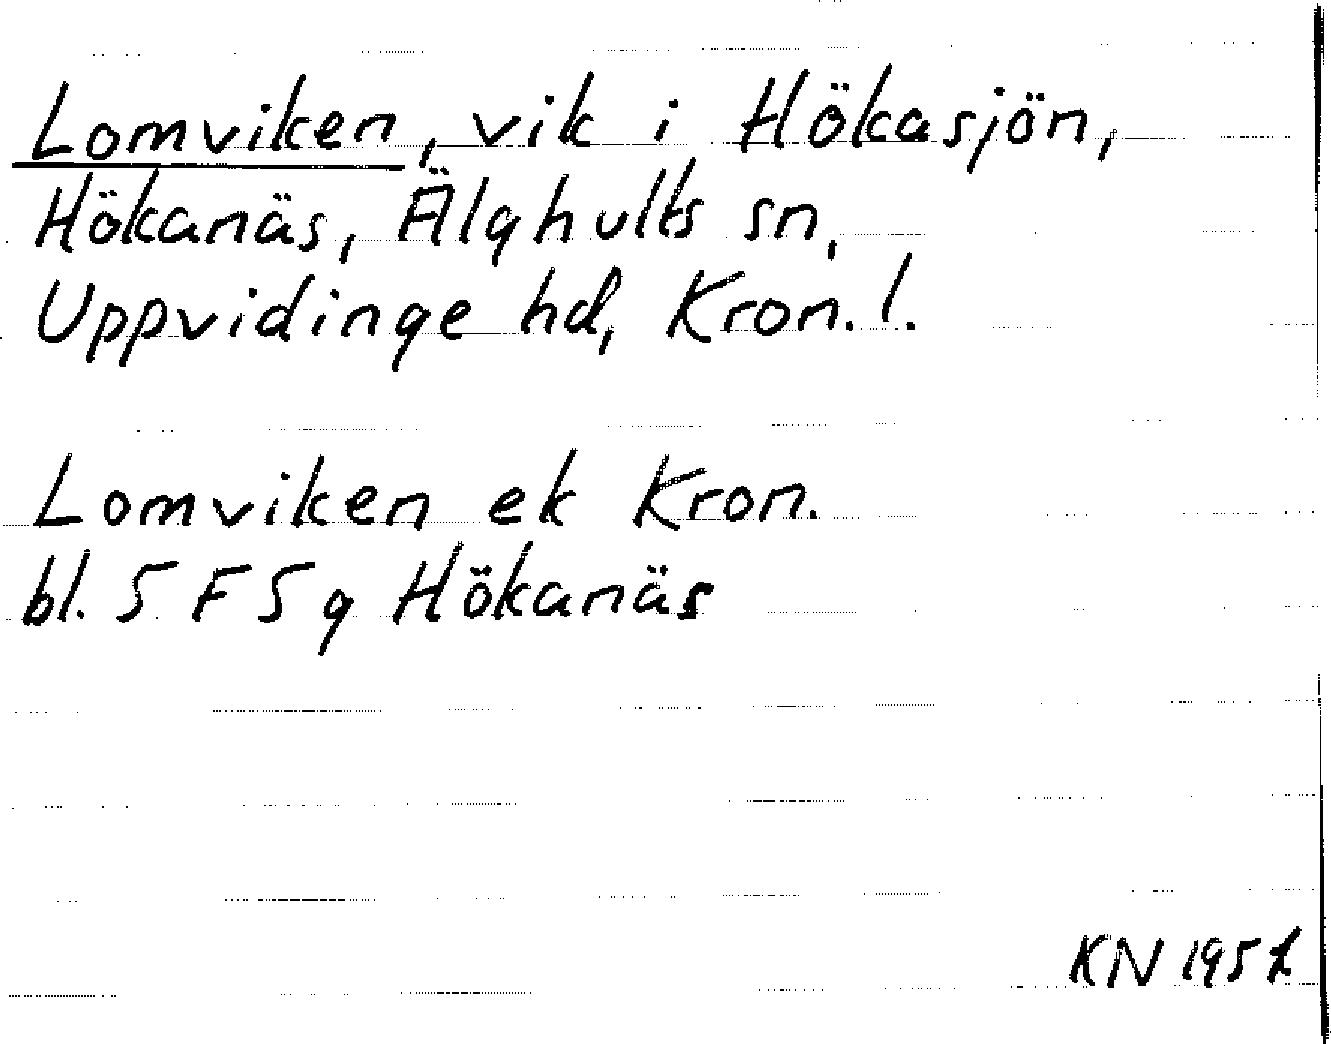 Lomviken, vik i Hökasjön,
Hökanäs, Älghults sn,
Uppvidinge hd, Kron. l.
Lomviken ek Kron.
bl. 5 F 5 g Hökanäs
KN 1951